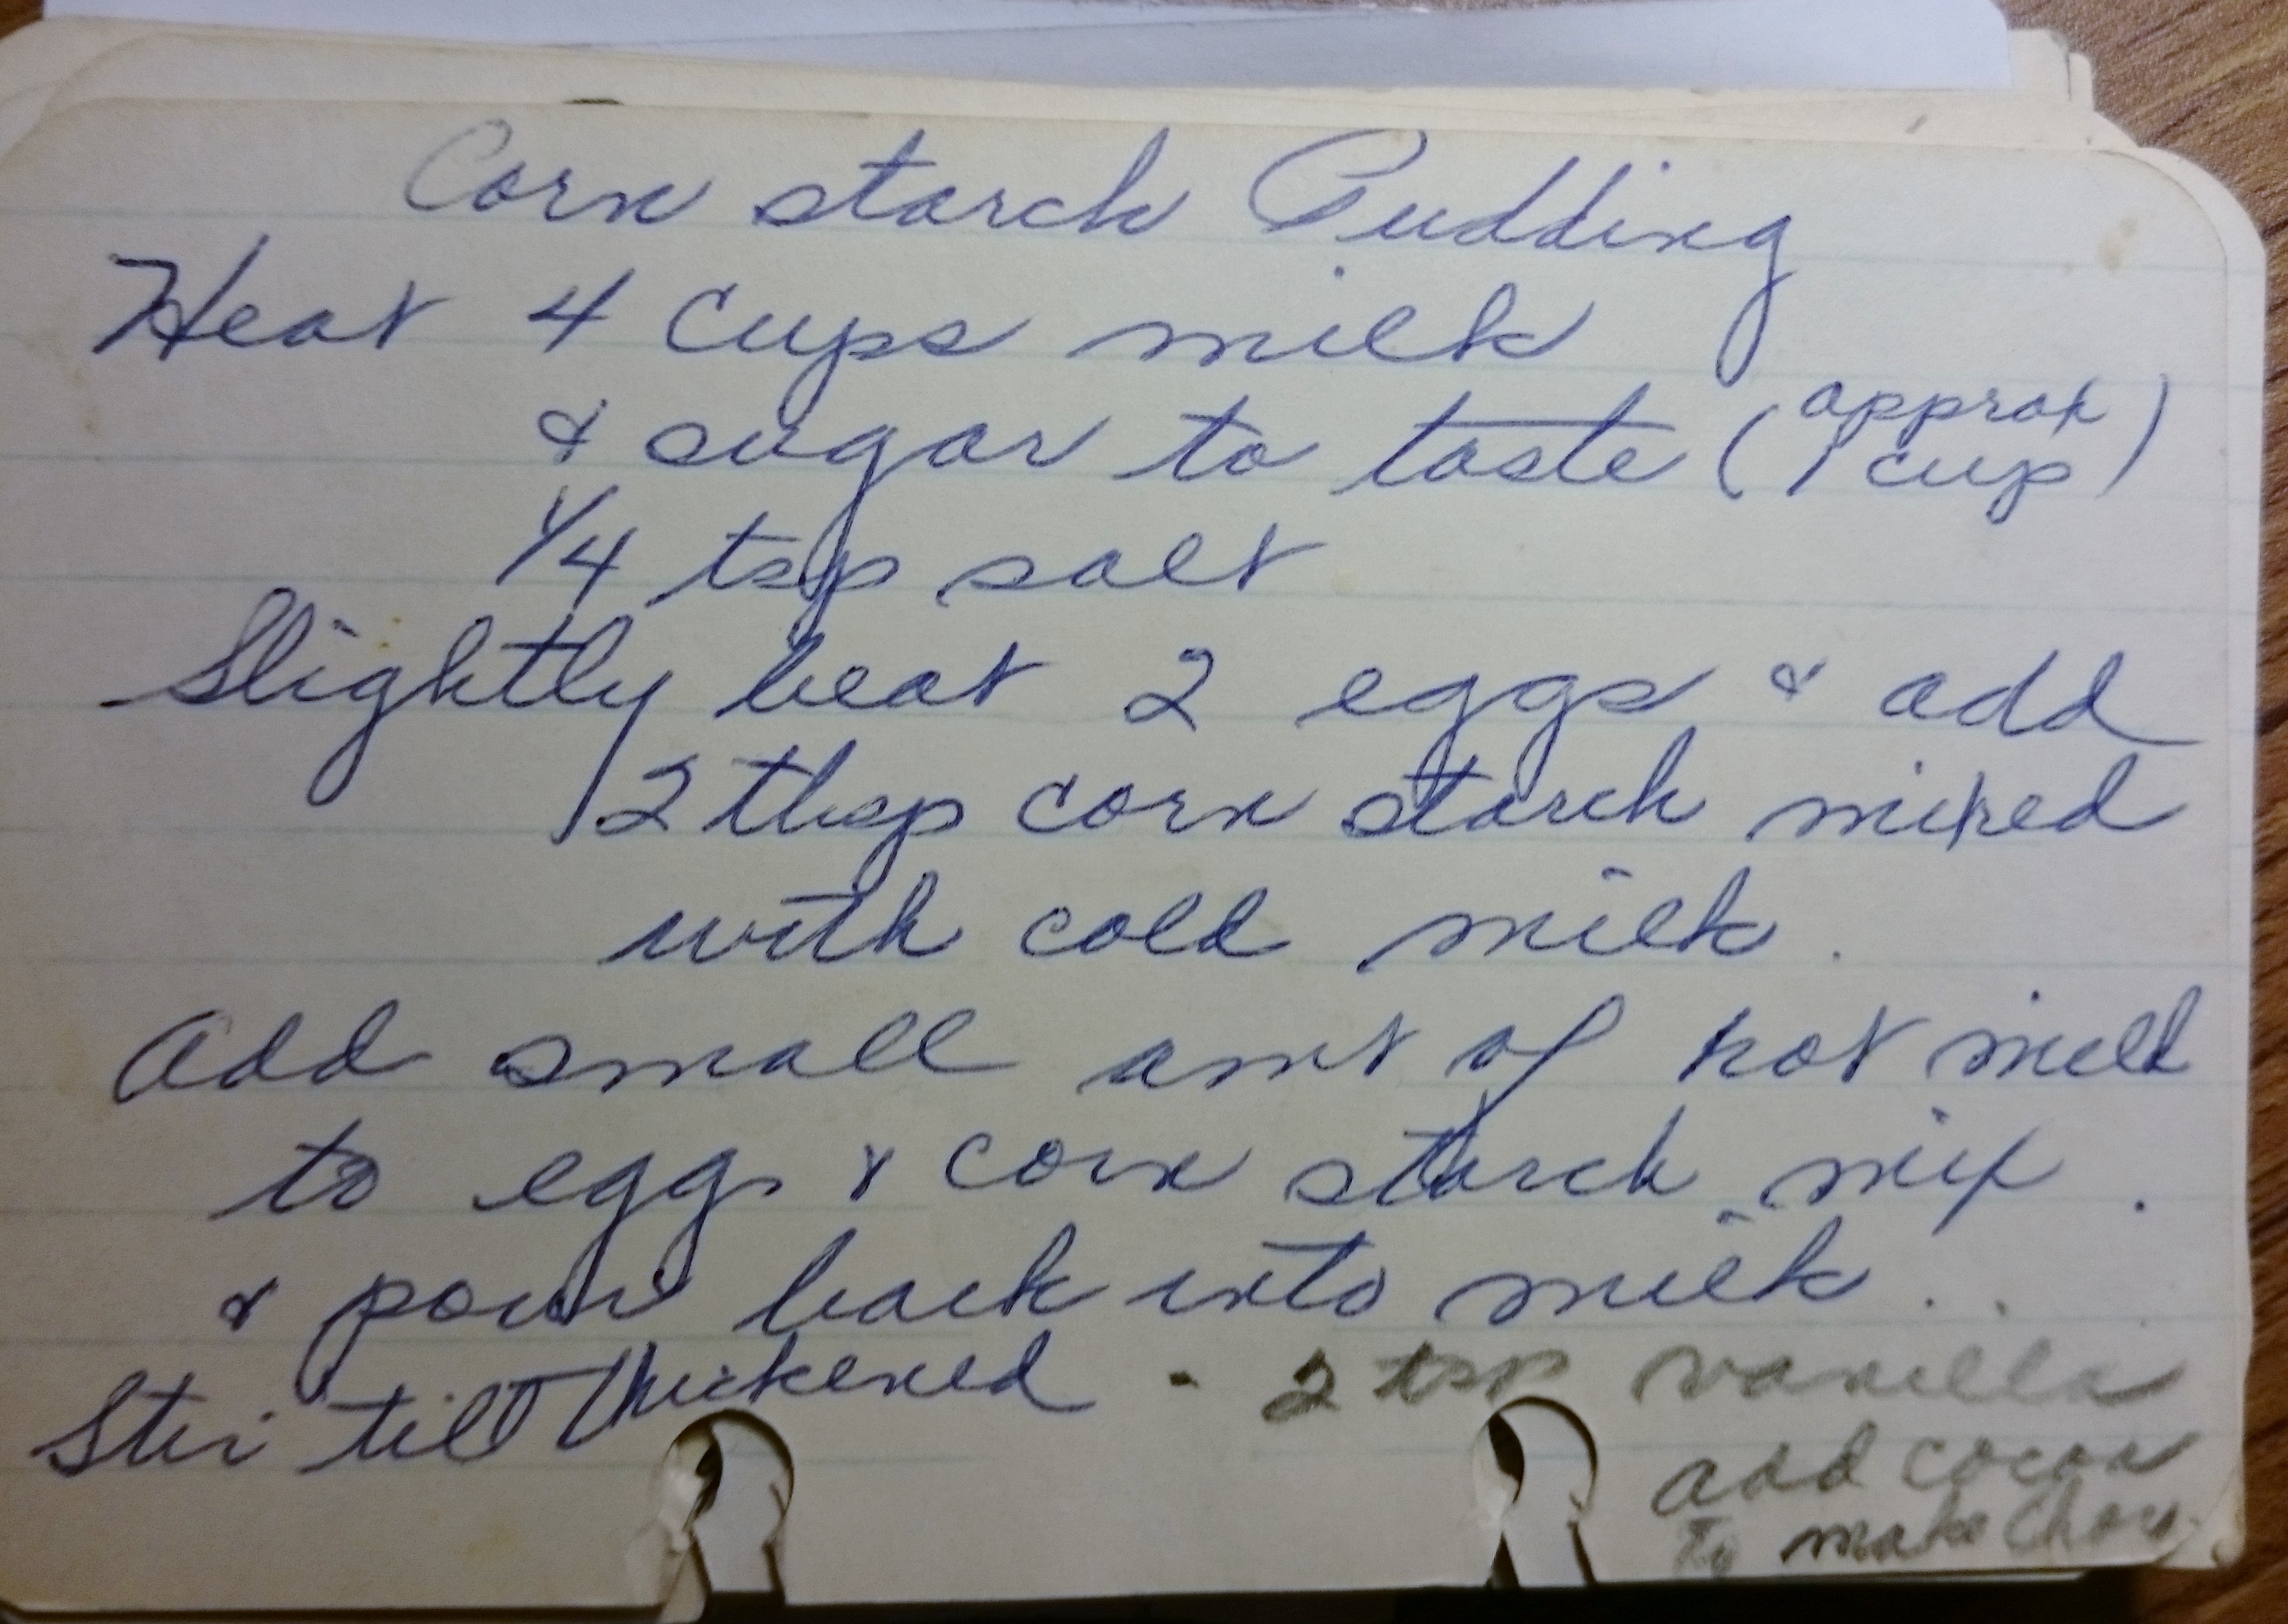 Corn starch Pudding
Heat 4 cups milk
& sugar to taste (approx 1 cup)
1/4 tsp salt
Slightly beat 2 eggs & add
2 tbsp corn starch mixed
with cold milk.
Add small amt of hot milk
to eggs & corn starch mix.
& pour back into milk..
Stir till thickened - 2 tsp vanilla
add cocoa
to make Choc.